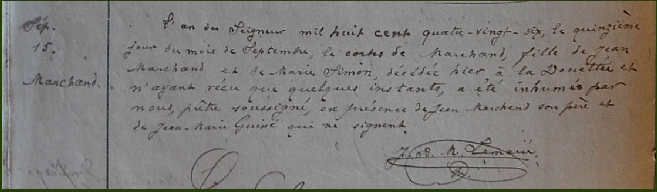 Sép.
15.
Marchand
L'an du Seigneur mil huit cent quatre-vingt-dix, le quinzième
jour du mois de Septembre, le corps de Marchand, fille de Jean
Marchand et de Marie Simon, décédée hier à la Douettée et
n'ayant vécu que quelques instants, a été inhumé par
nous, prêtre soussigné, en présence de Jean Marchand son père et
de Jean-Marie Guiné qui ne signent.
M. Lemarié